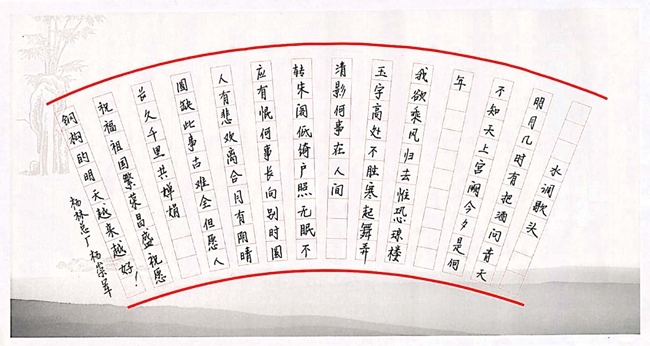 水调歌头
明月几时有把酒问青天
不知天上宫阙今夕是何
年
我欲乘风归去惟恐琼楼
玉宇高处不胜寒起舞弄
清影何事在人间
转朱阁低绮户照无眠不
应有恨何事长向别时圆
人有悲欢离合月有阴晴
圆缺此事古难全但愿人
长久千里共婵娟
祝福祖国繁荣昌盛祝愿
钢构的明天越来越好！
杨林总厂